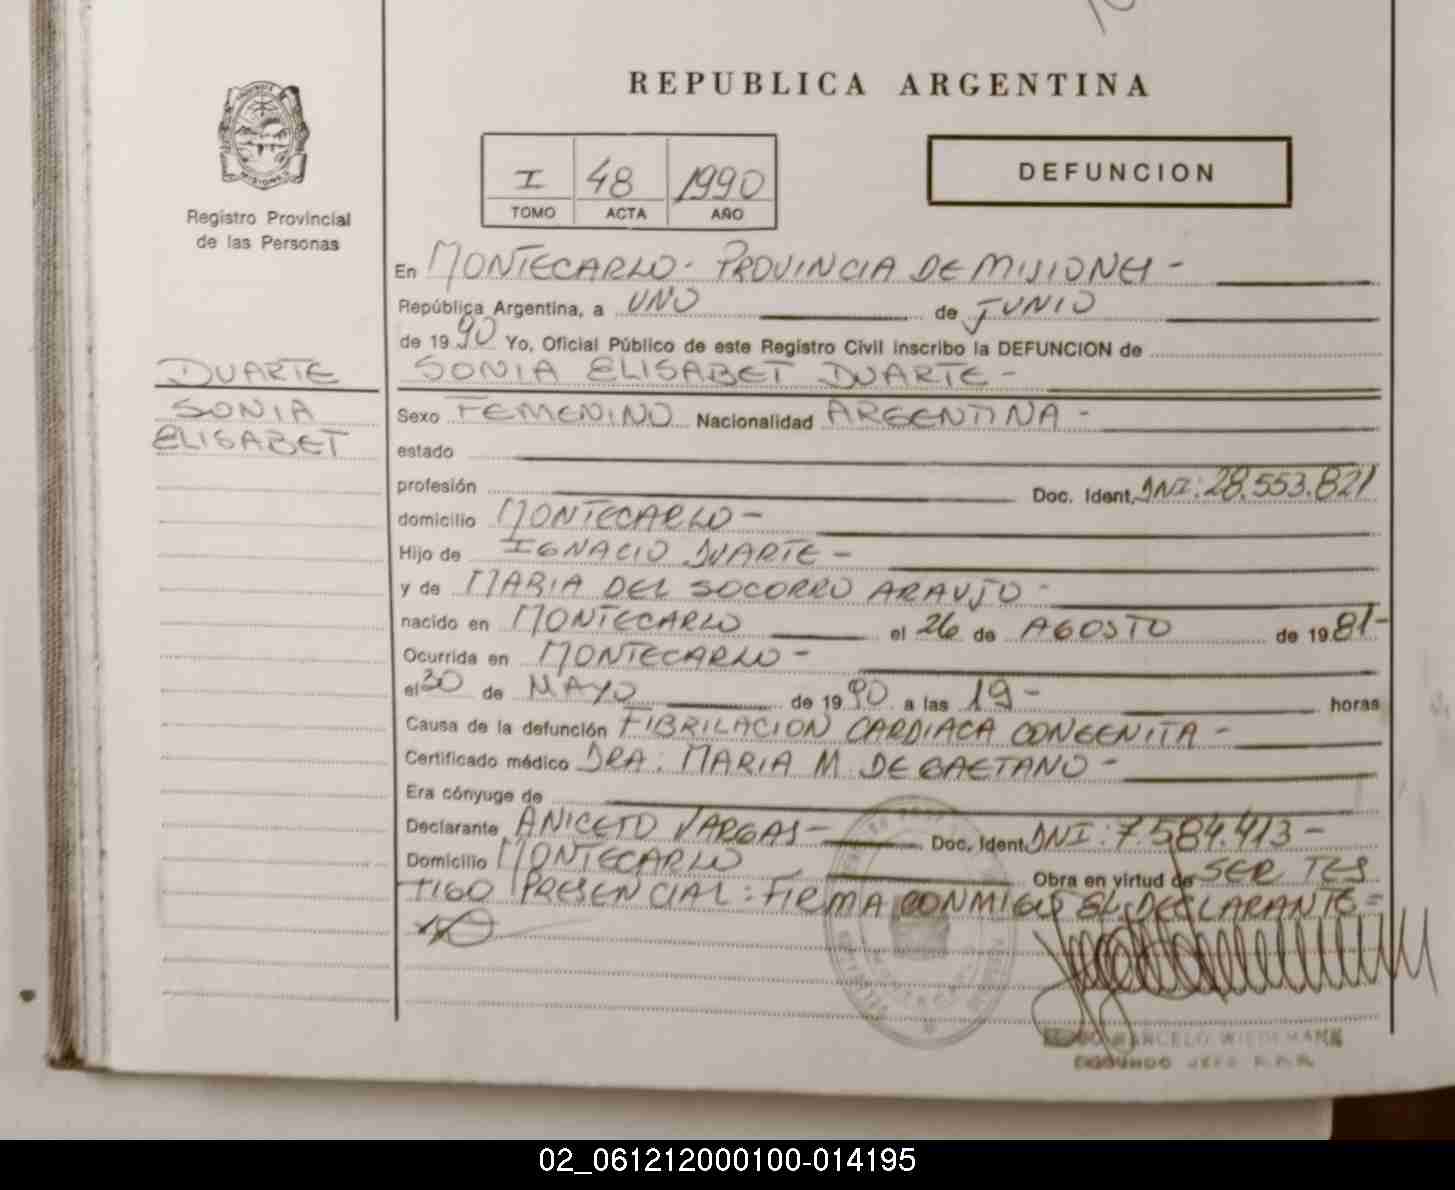 REPUBLICA ARGENTINA
MISIONES
Registro Provincial
de las Personas
I 48 1990
TOMO ACTA AÑO
DEFUNCION
En MONTECARLO - PROVINCIA DE MISIONES -
República Argentina, a UNO de JUNIO
de 1990 Yo, Oficial Público de este Registro Civil inscribo la DEFUNCION de
DUARTE
SONIA
ELISABET
SONIA ELISABET DUARTE -
Sexo FEMENINO Nacionalidad ARGENTINA -
estado
profesión Doc. Ident. DNI: 28.553.821
domicilio MONTECARLO -
Hijo de IGNACIO DUARTE -
y de MARIA DEL SOCORRO ARAUJO -
nacido en MONTECARLO el 26 de AGOSTO de 1981-
Ocurrida en MONTECARLO -
el 30 de MAYO de 1990 a las 19 - horas
Causa de la defunción FIBRILACION CARDIACA CONGENITA -
Certificado médico DRA: MARIA M. DE GAETANO -
Era cónyuge de
Declarante ANICETO VARGAS - Doc. Ident. DNI: 7.584.413 -
Domicilio MONTECARLO Obra en virtud de SER TES
TIGO PRESENCIAL: FIRMA CONMIGO EL DECLARANTE =
MARCELO WIEDEMANN
SEGUNDO JEFE R.P.P.
02_061212000100-014195